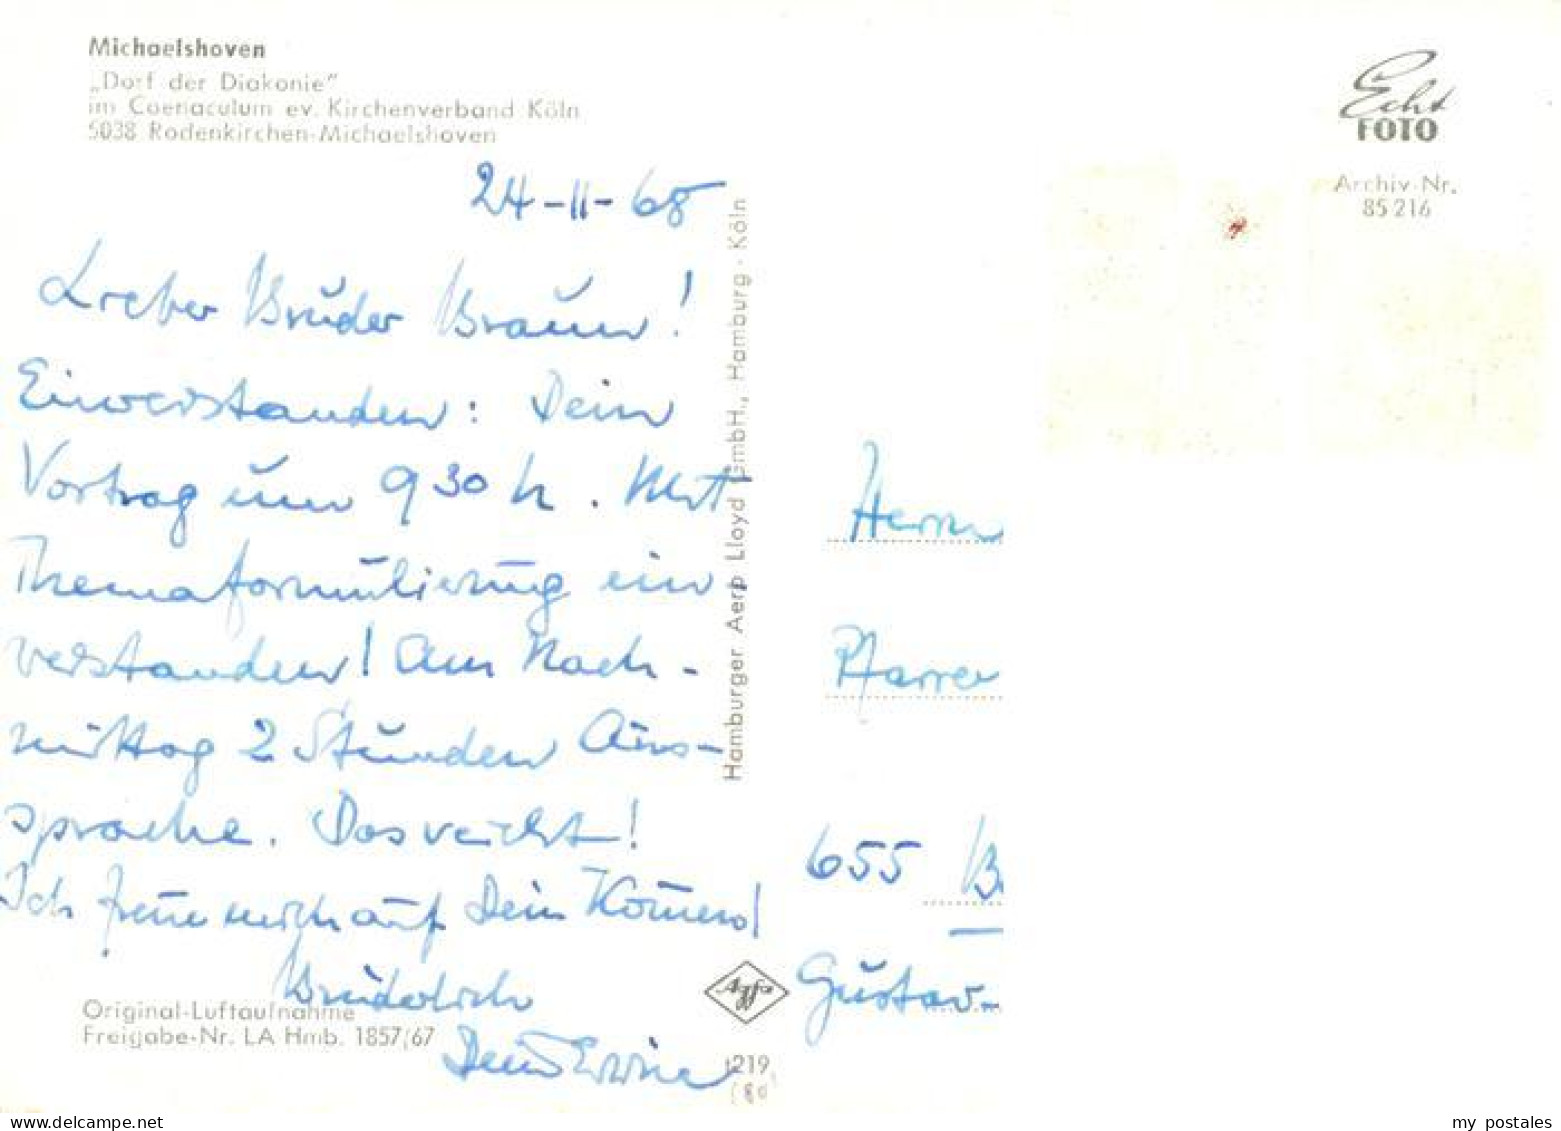 Michaelshoven
„Dorf der Diakonie"
im Coenaculum ev. Kirchenverband Köln
5038 Rodenkirchen-Michaelshoven
Echt
FOTO
Archiv-Nr.
85 216
24-11-68
Lieber Bruder Braun!
Einverstanden: Dein
Vortrag um 9 30 h. Mit
Themaformulierung ein
verstanden! Am Nach-
mittag 2 Stunden Aus-
sprache. Das reicht!
Ich freue mich auf Dein Kommen!
Brüderlich
Dein Erwin
Original-Luftaufnahme
Freigabe-Nr. LA Hmb. 1857/67
Hamburger Aero Lloyd GmbH., Hamburg - Köln
Agfa
1219
(80
Herrn
Pfarrer
655 B
Gustav-
www.delcampe.net
my_postales